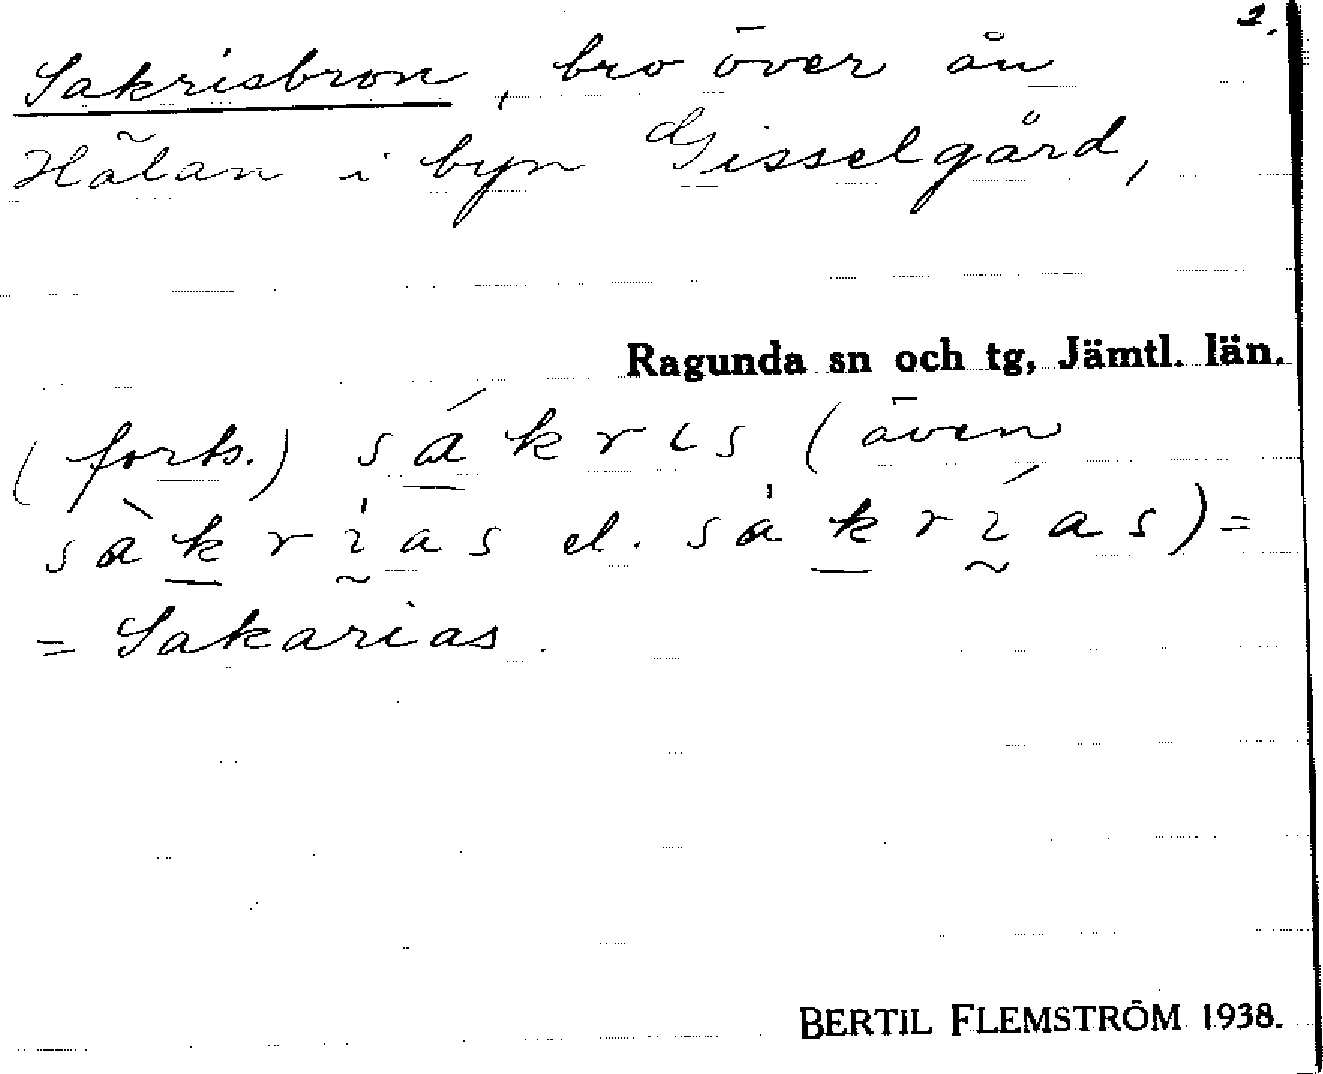 2.
Sakrisbron, bro över ån
Hålan i byn Gisselgård,
Ragunda sn och tg, Jämtl. län.
(forts.) sákris (även
sàkrıas el. sakrías) =
= Sakarias.
BERTIL FLEMSTRÖM 1938.